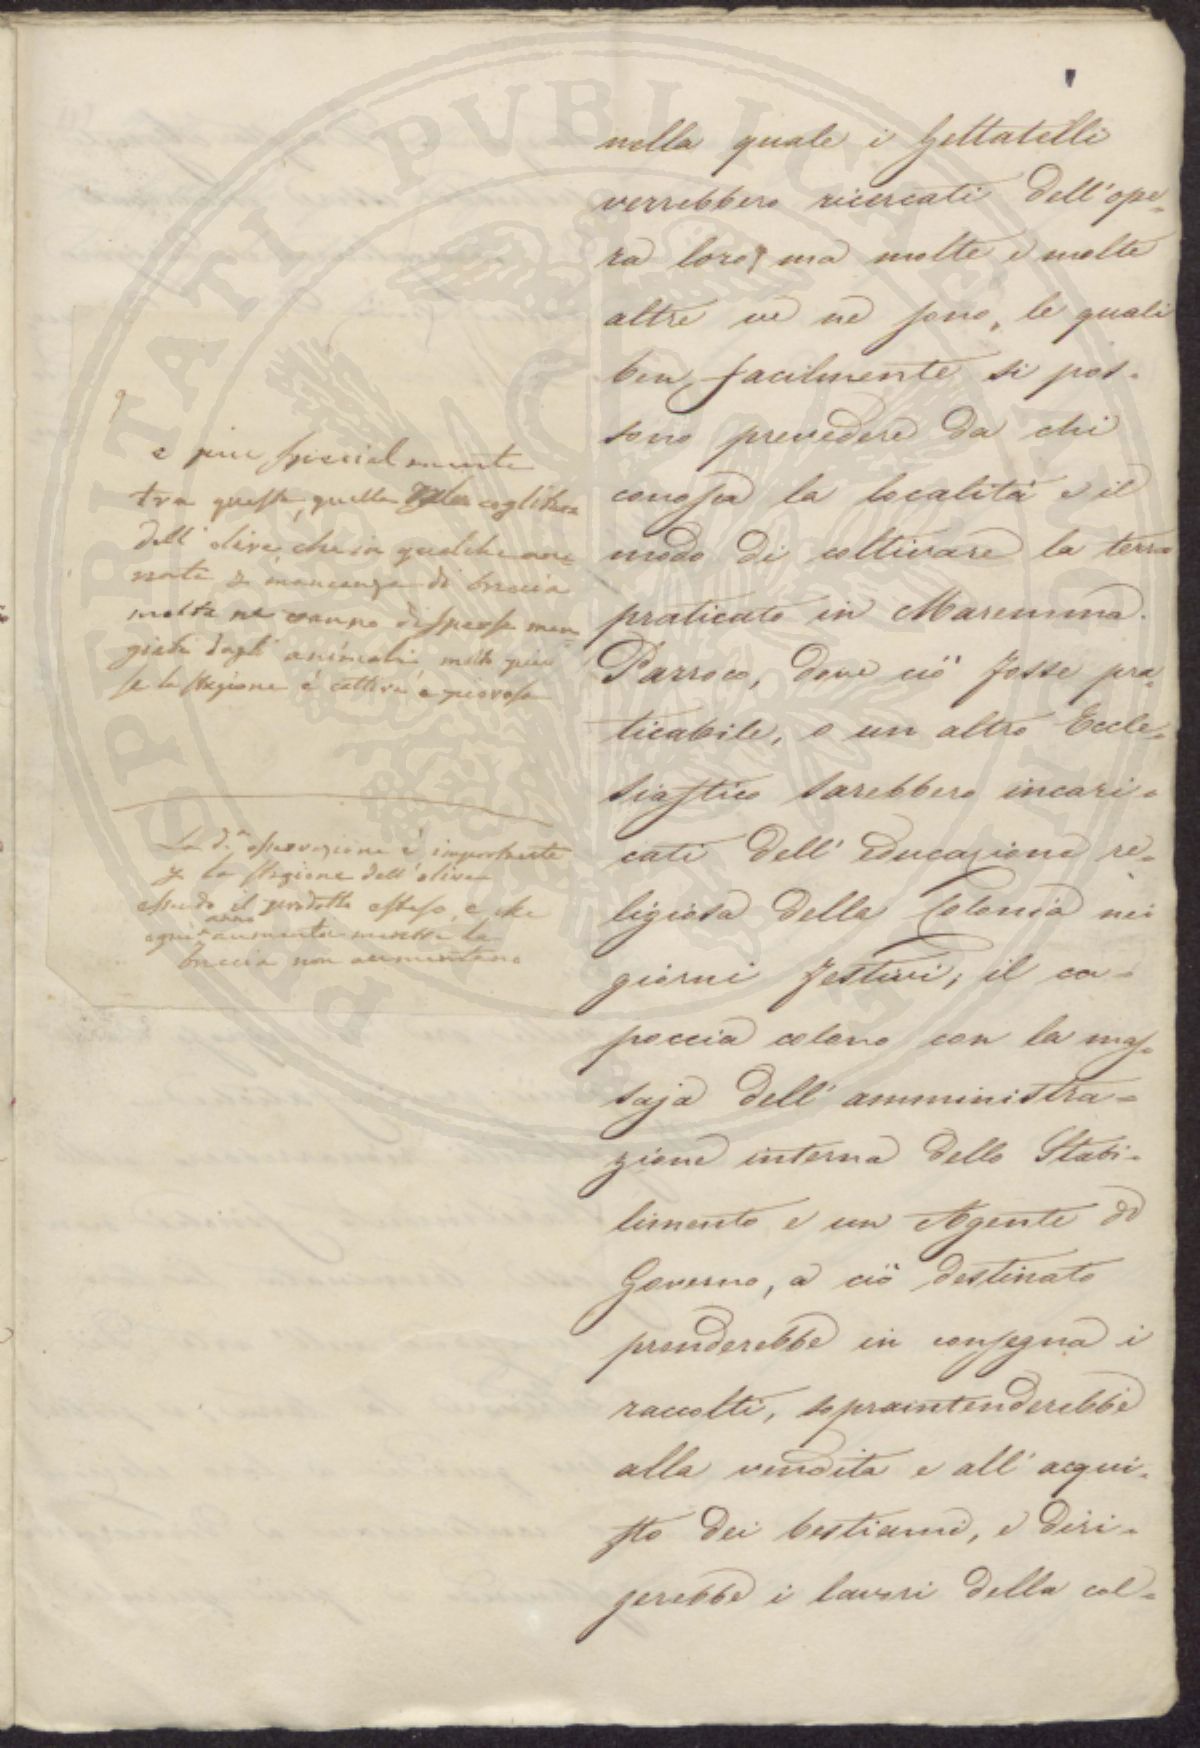 nella quale i Gettatelli
verrebbero ricercati dell'ope-
ra loro; ma molte e molte
altre ve ne sono, le quali
ben facilmente si pos-
sono prevedere da chi
conosca la località e il
modo di coltivare la terra
praticato in Maremma.
Parroco, dove ciò fosse pra-
ticabile, o un altro Eccle-
siastico sarebbero incari-
cati dell' educazione re-
ligiosa della Colonia nei
giorni festivi; il ca-
poccia colono con la mas-
saja dell' amministra-
zione interna dello Stabi-
limento e un Agente di
Governo, a ciò destinato
prenderebbe in consegna i
raccolti, sopraintenderebbe
alla vendita e all' acqui-
sto dei bestiami, e diri-
gerebbe i lavori della col-
e più specialmente
tra queste, quella della coglitura
dell' olive che in qualche an-
nata p mancanza di braccia
molte ne vanno disperse man-
giate dagli animali, molto più
se la stagione è cattiva e piovosa
La d.a osservazione è importante
p la stagione dell' olive
essendo il prodotto esteso, e che
ogni anno aumenta mentre le
braccia non aumentano
PVBLICAE
SPERITATI